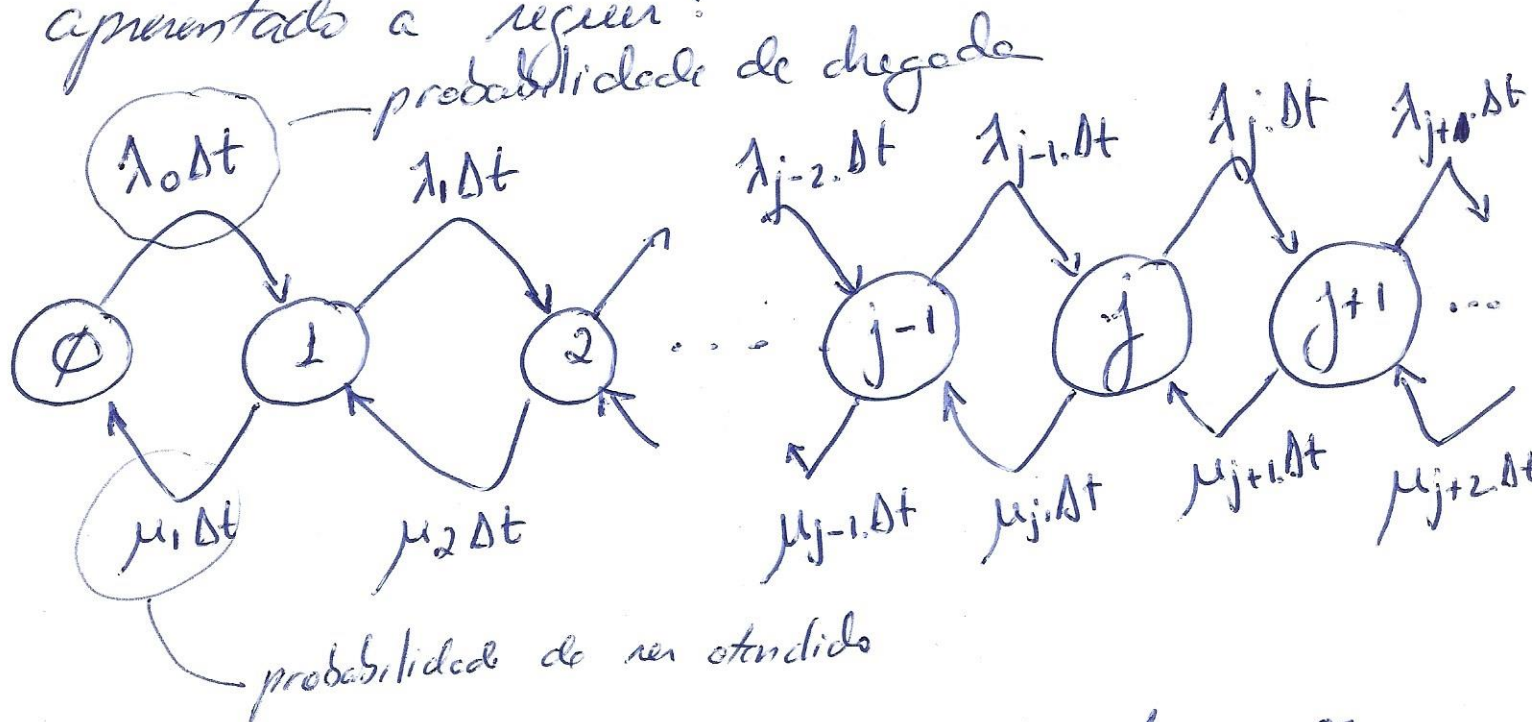 apresentado a seguir:
probabilidade de chegada
λ₀Δt λ₁Δt λⱼ₋₂.Δt λⱼ₋₁.Δt λⱼ.Δt λⱼ₊₁.Δt
∅ 1 2 ... j-1 j j+1 ...
μ₁Δt μ₂Δt μⱼ₋₁.Δt μⱼ.Δt μⱼ₊₁.Δt μⱼ₊₂.Δt
probabilidade de ser atendido